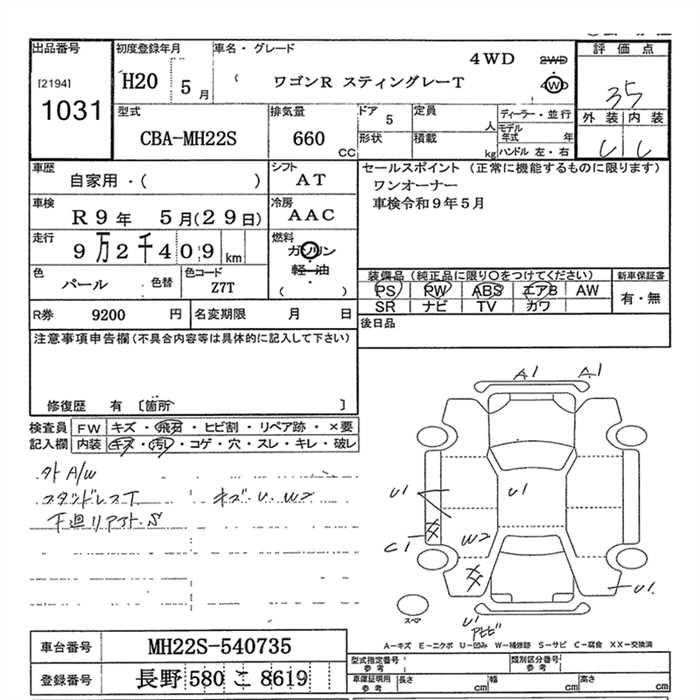 出品番号 初度登録年月 車名・グレード 評価点
[2194] H20 5月 ( ワゴンR スティングレーT 4WD 2WD 4WD 35
1031 型式 排気量 ドア 5 定員 人 ディーラー・並行 外装 内装
CBA-MH22S 660 CC 形状 積載 kg モデル年式 年 ハンドル 左・右
車歴 シフト セールスポイント (正常に機能するものに限ります)
自家用・( ) AT ワンオーナー
車検 冷房 車検令和9年5月
R9年 5月(29日) AAC
走行 燃料
9万2千409 km ガソリン
色 色替 色コード 軽・油 装備品 (純正品に限り○をつけてください) 新車保証書
パール Z7T ( ) PS PW ABS エアB AW 有・無
SR ナビ TV カワ
R券 9200 円 名変期限 月 日 後日品
注意事項申告欄(不具合内容等は具体的に記入して下さい)
修復歴 有 [箇所 ]
検査員 FW キズ・飛石・ヒビ割・リペア跡・×要
記入欄 内装 キズ・汚レ・コゲ・穴・スレ・キレ・破レ
外 A/W
スタッドレスT キズ U W2
下廻リアクト S
A1 A1
U1 U1
C1 W2
U1
U1
アヒビ
スペア
A-キズ E-エクボ U-凹み W-補修跡 S-サビ C-腐食 XX-交換済
車台番号 MH22S-540735 型式指定番号 参考 類別区分番号 参考
登録番号 長野 580 こ 8619 車庫証明用 参考 長さ cm 幅 cm 高さ cm